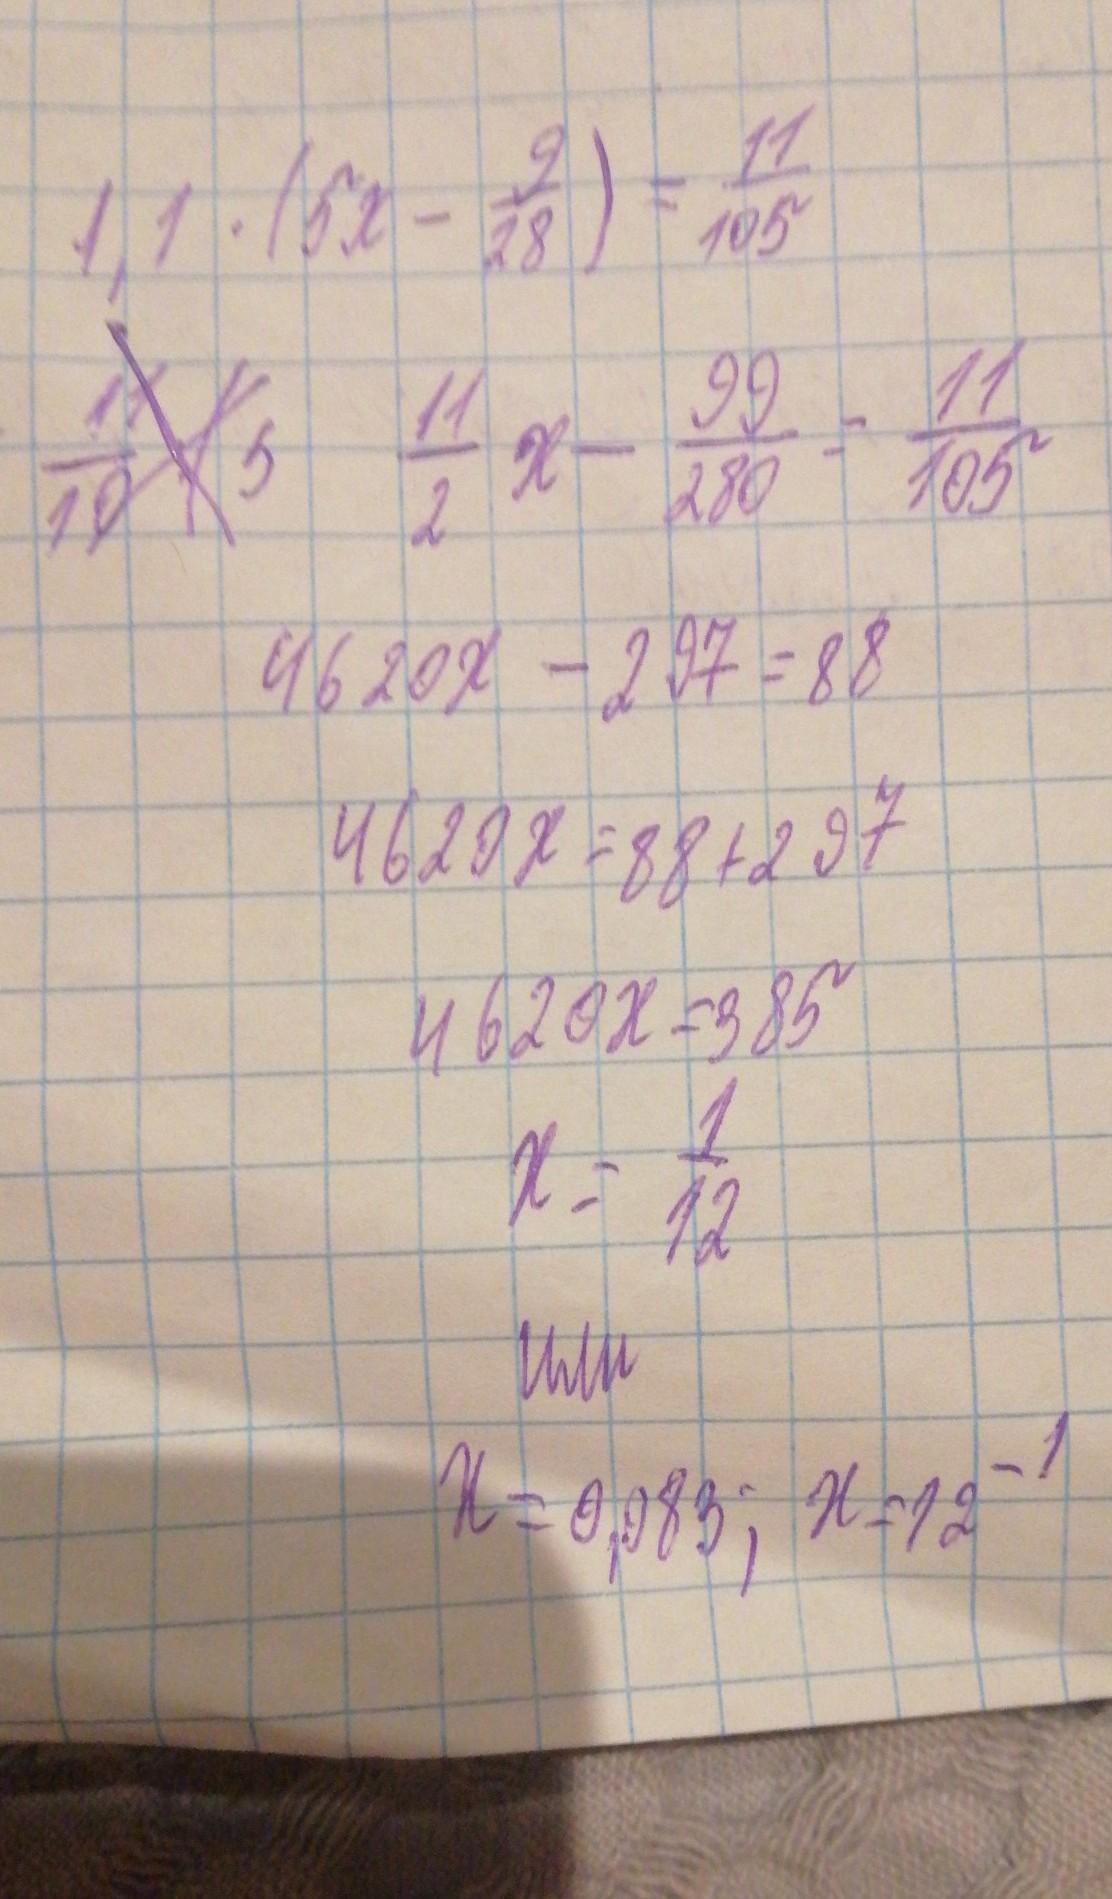 1,1 · (5x − 9/28) = 11/105
11/10 · 1/5 11/2 x − 99/280 = 11/105
4620x − 297 = 88
4620x = 88 + 297
4620x = 385
x = 1/12
или
x = 0,083; x = 12⁻¹